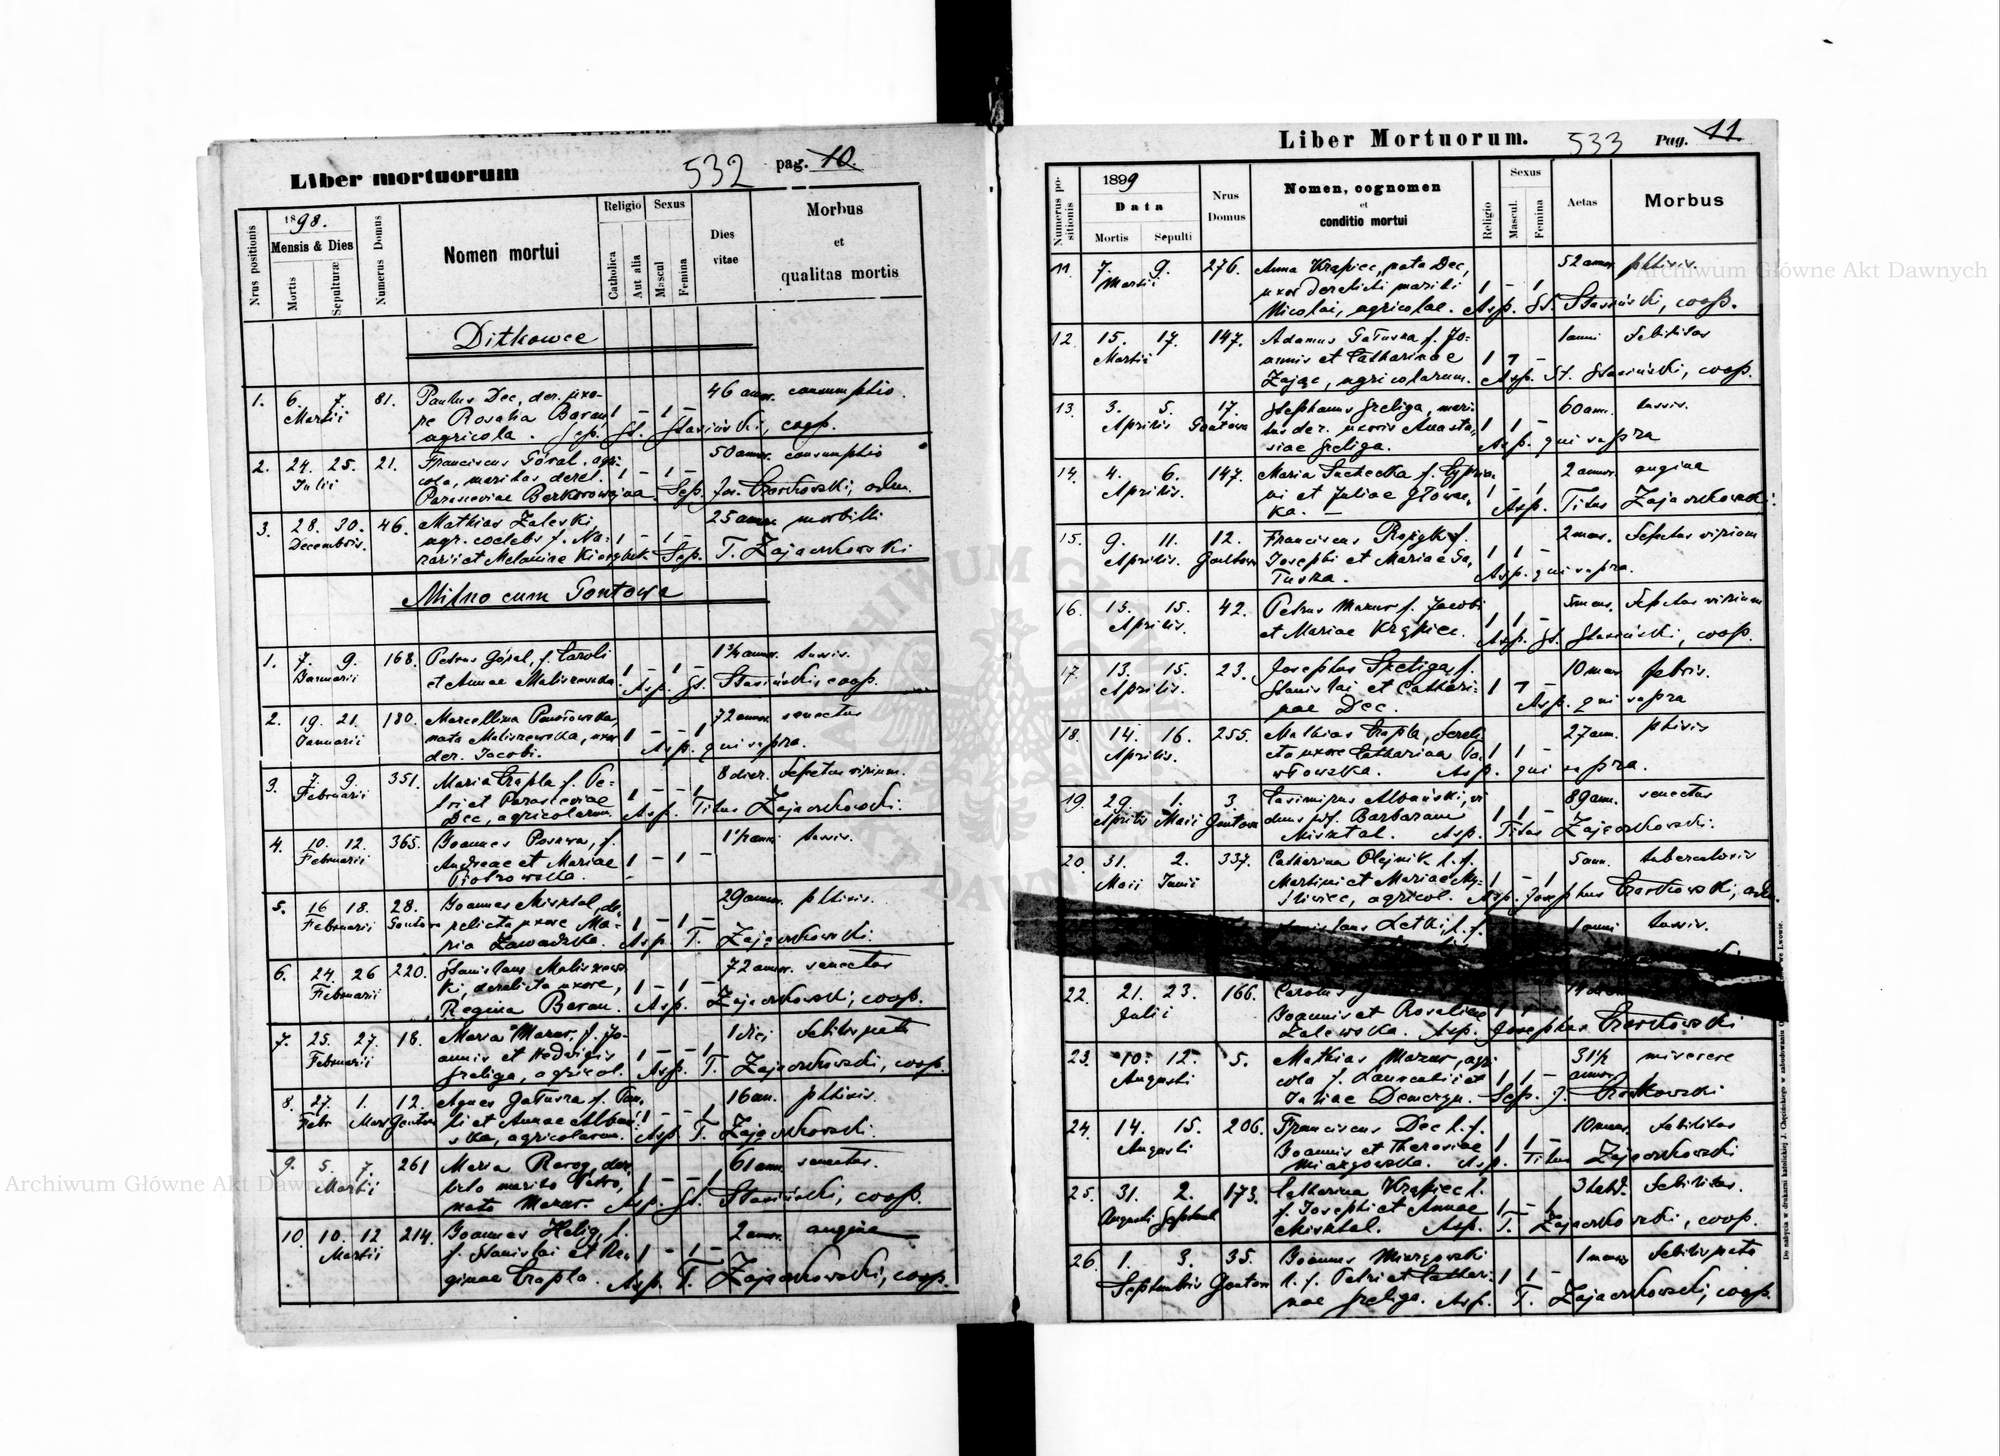 Liber mortuorum
532
pag. 10.
Nrus positionis
1898.
Mensis & Dies
Mortis
Sepulturæ
Numerus Domus
Nomen mortui
Religio
Catholica
Aut alia
Sexus
Mascul
Femina
Dies
vitae
Morbus
et
qualitas mortis
Ditkowce
1. 6. 7. 81. Paulus Dec, der. uxo- 46 annor. consumptio.
Martii re Rosalia Baran 1 – 1 –
agricola. Sep. St. Stasiński, coop.
2. 24. 25. 21. Franciscus Góral, agri- 50 annor. consumptio
Julii cola, maritus derel. 1 – 1 –
Parasceviae Sep. Jos. Czortkowski, adm.
3. 28. 30. 46. Mathias Zaleski, 25 annor. morbilli
Decembris. agr. coelebs f. Na- 1 – 1 –
zarii et Melaniae Sep. T. Zajączkowski
Milno cum Gontowa
1. 7. 9. 168. Petrus Góral, f. Caroli 1¾ annor. tussis.
Januarii et Annae Maliszewska. 1 – 1 – Asp. St. Stasiński coop.
2. 19. 21. 180. Marcellina Pawłowska, 72 annor. senectus
Januarii nata Maliszewska, uxor 1 – – 1
der. Jacobi. Asp. qui supra.
3. 7. 9. 351. Maria Czapla f. Pe- 8 dier. defectus virium.
Februarii tri et Parasceviae 1 – – 1
Dec, agricolarum. Asp. Titus Zajączkowski.
4. 10. 12. 365. Joannes Posawa, f. 1½ anni tussis.
Februarii Andreae et Mariae 1 – 1 –
Piotrowska.
5. 16 18. 28. Joannes Misztal, de- 29 annor. phtisis.
Februarii Gontowa relicta uxore Ma- 1 – 1 –
ria Zawadzka. Asp. T. Zajączkowski.
6. 24. 26 220. Stanislaus Maliszews- 72 annor. senectus
Februarii ki, derelicta uxore, 1 – 1 –
Regina Baran. Asp. Zajączkowski, coop.
7. 25. 27. 18. Maria Mazur, f. Jo- 1 diei debilis nata
Februarii annis et Hedvigis 1 – – 1
Greliga, agricol. Asp. T. Zajączkowski, coop.
8. 27. 1. 12. Agnes Gałuszka f. Pau- 16 an. phtisis.
Febr Mart Gontowa li et Annae Albań- 1 – – 1
ska, agricolarum. Asp. T. Zajączkowski.
9. 5. 7. 261 Maria Rarog, der. 61 ann. senectus.
Martii marito Petro, 1 – – 1
nata Mazur. Asp. St. Stasiński, coop.
10. 10. 12 214. Joannes Helig, l. 2 annor. angina
Martii f. Stanislai et Re- 1 – 1 –
ginae Czapla. Asp. T. Zajączkowski, coop.
Liber Mortuorum.
533
Pag. 11
Numerus po-
sitionis
1899
Data
Mortis
Sepulti
Nrus
Domus
Nomen, cognomen
et
conditio mortui
Religio
Sexus
Mascul.
Femina
Aetas
Morbus
11. 7. 9. 276. Anna Krąpiec, nata Dec, 52 annor. phtisis.
Martii uxor derelicti mariti 1 – 1
Nicolai, agricolae. Asp. St. Stasiński, coop.
12. 15. 17. 147. Adamus Gałuszka f. Jo- 1 anni debilitas
Martii annis et Catharinae 1 1 –
Zając, agricolarum. Asp. St. Stasiński, coop.
13. 3. 5. 17. Stephanus Greliga, mari- 60 ann. tussis.
Aprilis Gontowa tus der. uxoris Anasta- 1 1 –
siae Greliga. Asp. qui supra
14. 4. 6. 147. Maria f. 2 annor. angina
Aprilis. ni et Juliae Głowac- 1 – 1
ka. – Asp. Titus Zajączkowski.
15. 9. 11. 12. Franciscus f. 2 mens. defectus virium
Aprilis. Gontowa Josephi et Mariae Ga- 1 1
łuszka. Asp. qui supra.
16. 13. 15. 42. Petrus Mazur f. Jacobi 5 mens. defectus virium
Aprilis. et Mariae Krąpiec. 1 1 – Asp. St. Stasiński, coop.
17. 13. 15. 23. Josephus Szeliga, f. 10 mens. febris.
Aprilis. Stanislai et Cathari- 1 1 –
nae Dec. Asp. qui supra
18. 14. 16. 255. Mathias Czapla, dereli- 27 ann. phtisis
Aprilis. cta uxore Catharina Pa- 1 1 –
włowska. Asp. qui supra.
19. 29. 1. 3. Casimirus Albański, vi- 89 ann. senectus
Aprilis Maii Gontowa duus post Barbaram 1 1 –
Misztal. Asp. Titus Zajączkowski.
20. 31. 2. 337. Catharina Olejnik l. f. 5 ann. tuberculosis
Maii Junii Martini et Mariae My- 1 – 1
śliwiec, agricol. Asp. Josephus Czortkowski, adm.
Stanislaus Letki, l. f. 1 anni tussis.
22. 21. 23. 166. Carolus
Julii Joannis et Rosaliae 1 1
Zalewska. Asp. Josephus Czortkowski
23. 10. 12. 5. Mathias Mazur, agri- 31½ miserere
Augusti cola f. Laurentii et 1 1 – annor.
Juliae Demczyn. Sep. J. Czortkowski
24. 14. 15. 206. Franciscus Dec l. f. 10 mens. debilitas
Augusti Joannis et Theresiae 1 1 –
Miazgowska. Asp. Titus Zajączkowski
25. 31. 2. 173. Catharina Krąpiec l. 3 hebd. debilitas.
Augusti Septemb f. Josephi et Annae 1 – 1
Misztal. Asp. T. Zajączkowski, coop.
26. 1. 3. 35. Joannes Miazgowski 1 mens. debilis nata
Septembris Gontowa l. f. Petri et Cathari- 1 1 –
nae Greliga. Asp. T. Zajączkowski, coop.
Archiwum Główne Akt Dawnych
Archiwum Główne Akt Dawnych
ARCHIWUM GŁÓWNE AKT DAWNYCH